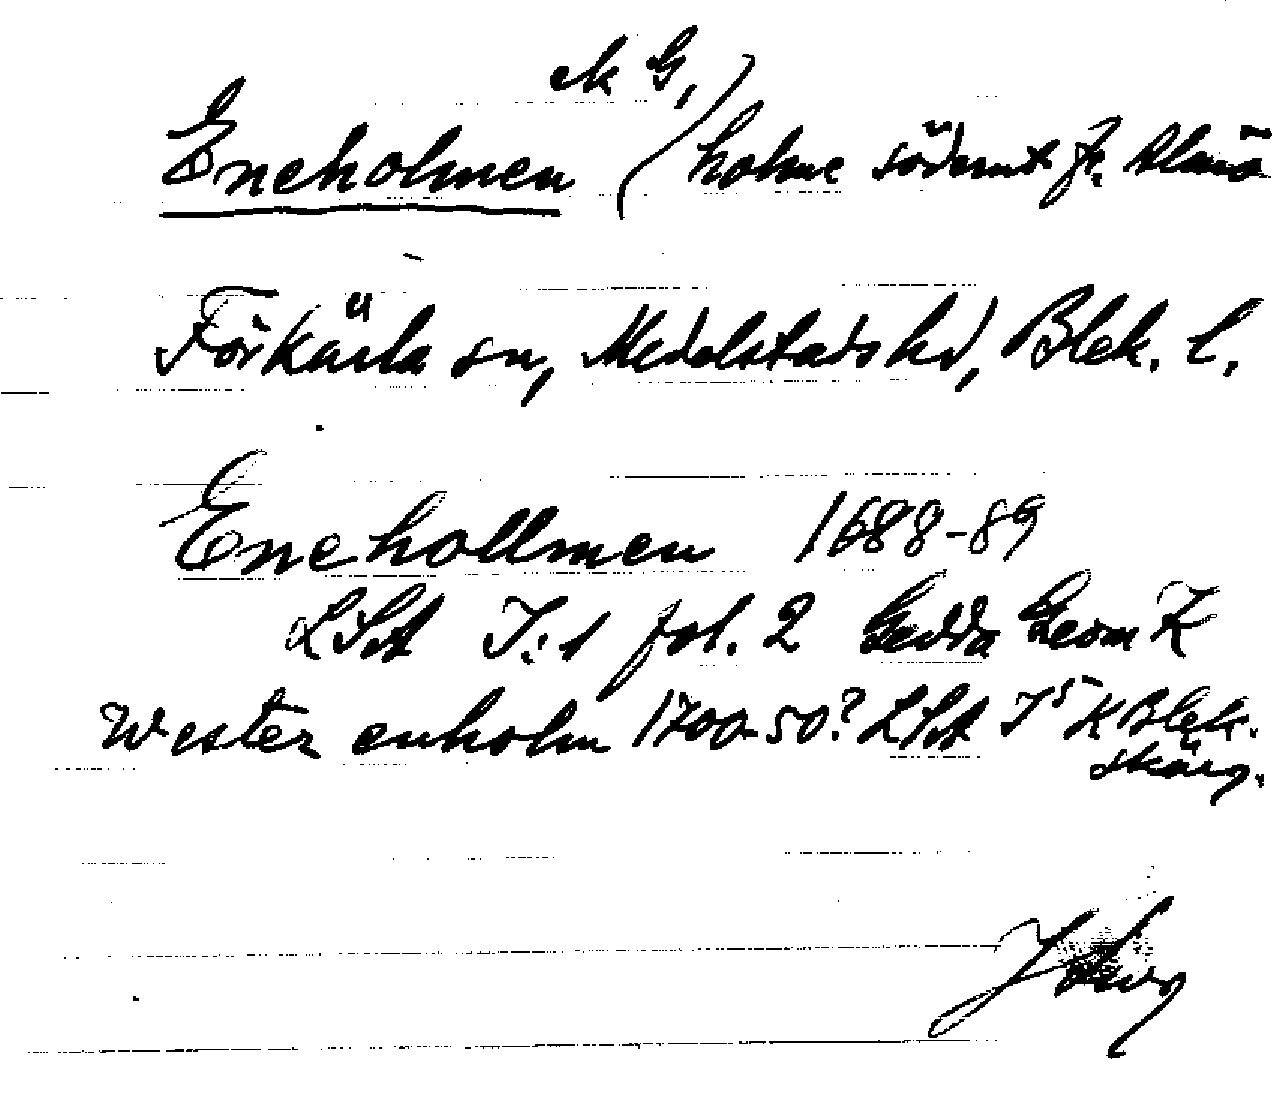 ek G,
Eneholmen holme söderut fr. Almö
Förkärla sn, Medelstads hd, Blek. l.
Enehollmen 1688-89
LSA I:1 fol. 2 Gedda Geom K
Wester enholm 1700-50? LSA I5 K Blek.
skärg.